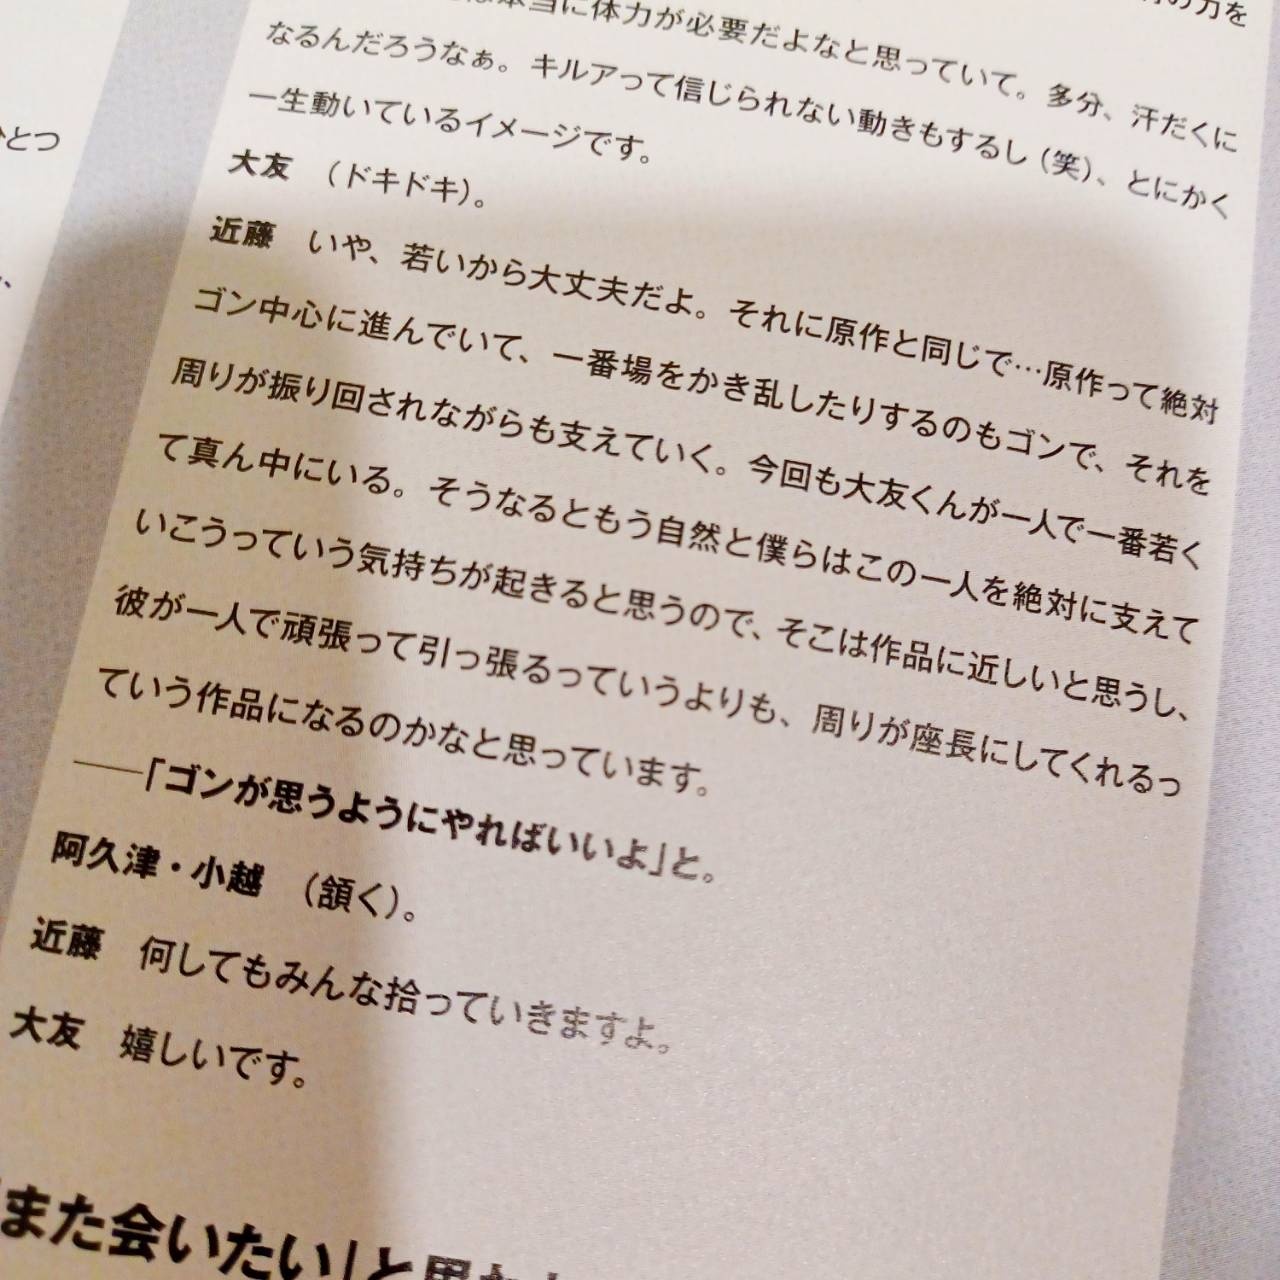 の力を
本当に体力が必要だよなと思っていて。多分、汗だくに
なるんだろうなぁ。キルアって信じられない動きもするし（笑）、とにかく
一生動いているイメージです。
大友　（ドキドキ）。
近藤　いや、若いから大丈夫だよ。それに原作と同じで…原作って絶対
ゴン中心に進んでいて、一番場をかき乱したりするのもゴンで、それを
周りが振り回されながらも支えていく。今回も大友くんが一人で一番若く
て真ん中にいる。そうなるともう自然と僕らはこの一人を絶対に支えて
いこうっていう気持ちが起きると思うので、そこは作品に近しいと思うし、
彼が一人で頑張って引っ張るっていうよりも、周りが座長にしてくれるっ
ていう作品になるのかなと思っています。
――「ゴンが思うようにやればいいよ」と。
阿久津・小越　（頷く）。
近藤　何してもみんな拾っていきますよ。
大友　嬉しいです。
「また会いたい」と思
ひとつ